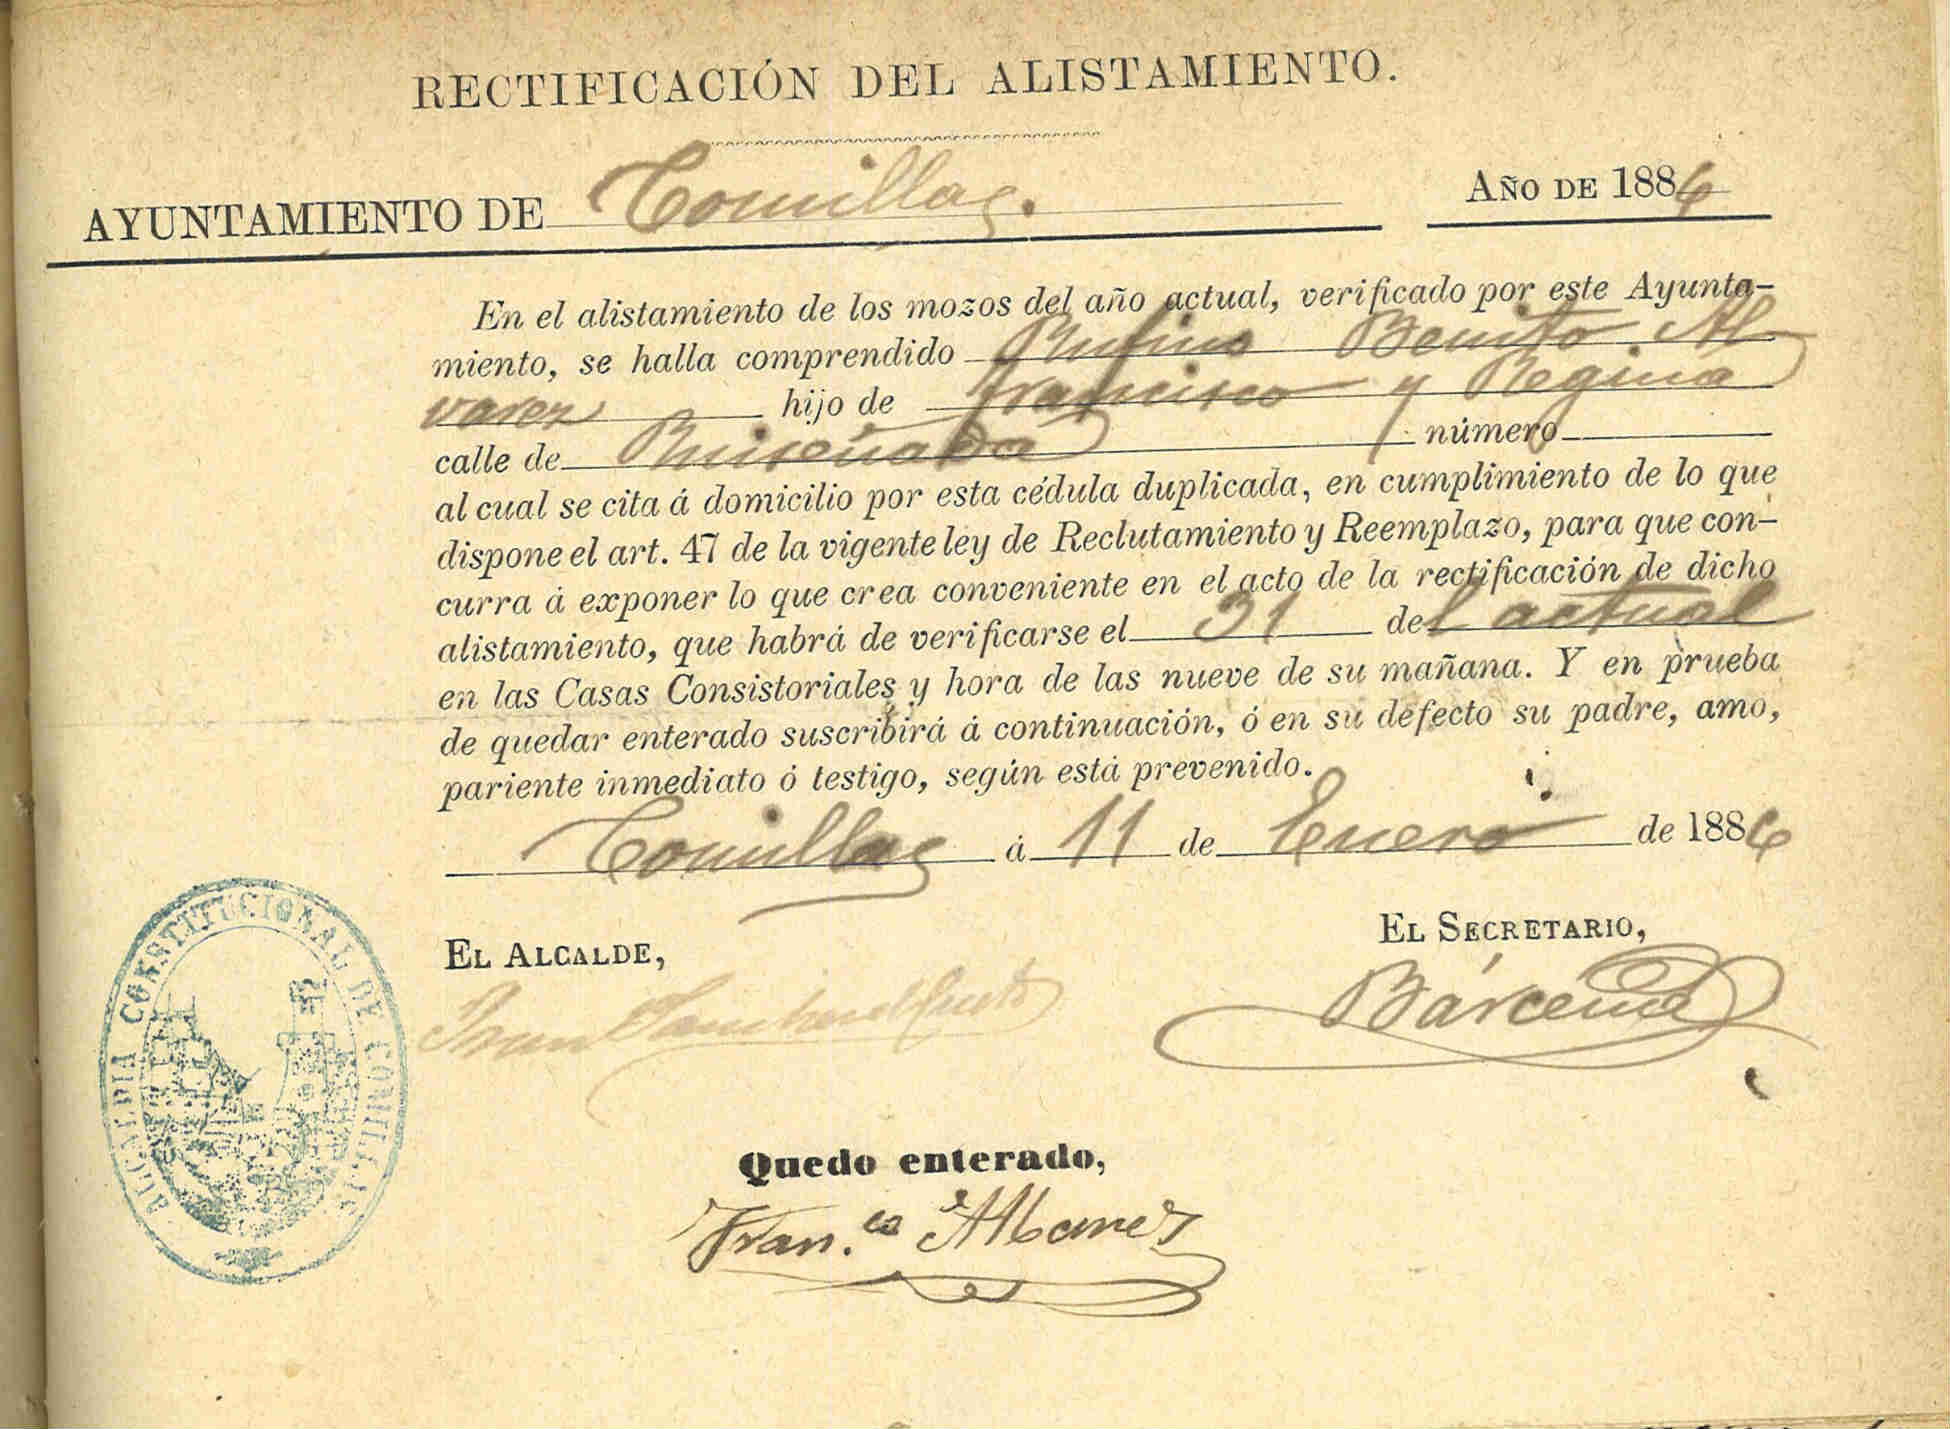 RECTIFICACIÓN DEL ALISTAMIENTO.
AYUNTAMIENTO DE Comillas.
AÑO DE 1886
En el alistamiento de los mozos del año actual, verificado por este Ayunta-
miento, se halla comprendido Rufino Benito Al
varez hijo de Francisco y Regina
calle de Ruiseñada número
al cual se cita á domicilio por esta cédula duplicada, en cumplimiento de lo que
dispone el art. 47 de la vigente ley de Reclutamiento y Reemplazo, para que con-
curra á exponer lo que crea conveniente en el acto de la rectificación de dicho
alistamiento, que habrá de verificarse el 31 del actual
en las Casas Consistoriales y hora de las nueve de su mañana. Y en prueba
de quedar enterado suscribirá á continuación, ó en su defecto su padre, amo,
pariente inmediato ó testigo, según está prevenido.
Comillas á 11 de Enero de 1886
EL ALCALDE,
EL SECRETARIO,
Juan
Bárcena
ALCALDIA CONSTITUCIONAL DE COMILLAS
Quedo enterado,
Fran.co Albarez